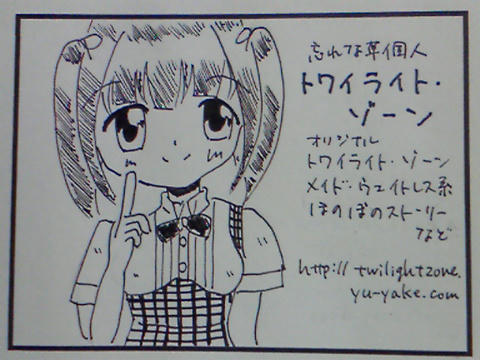 忘れな草個人
トワイライト・
ゾーン
オリジナル
トワイライト・ゾーン
メイド・ウェイトレス系
ほのぼのストーリー
など
http://twilightzone.
yu-yake.com